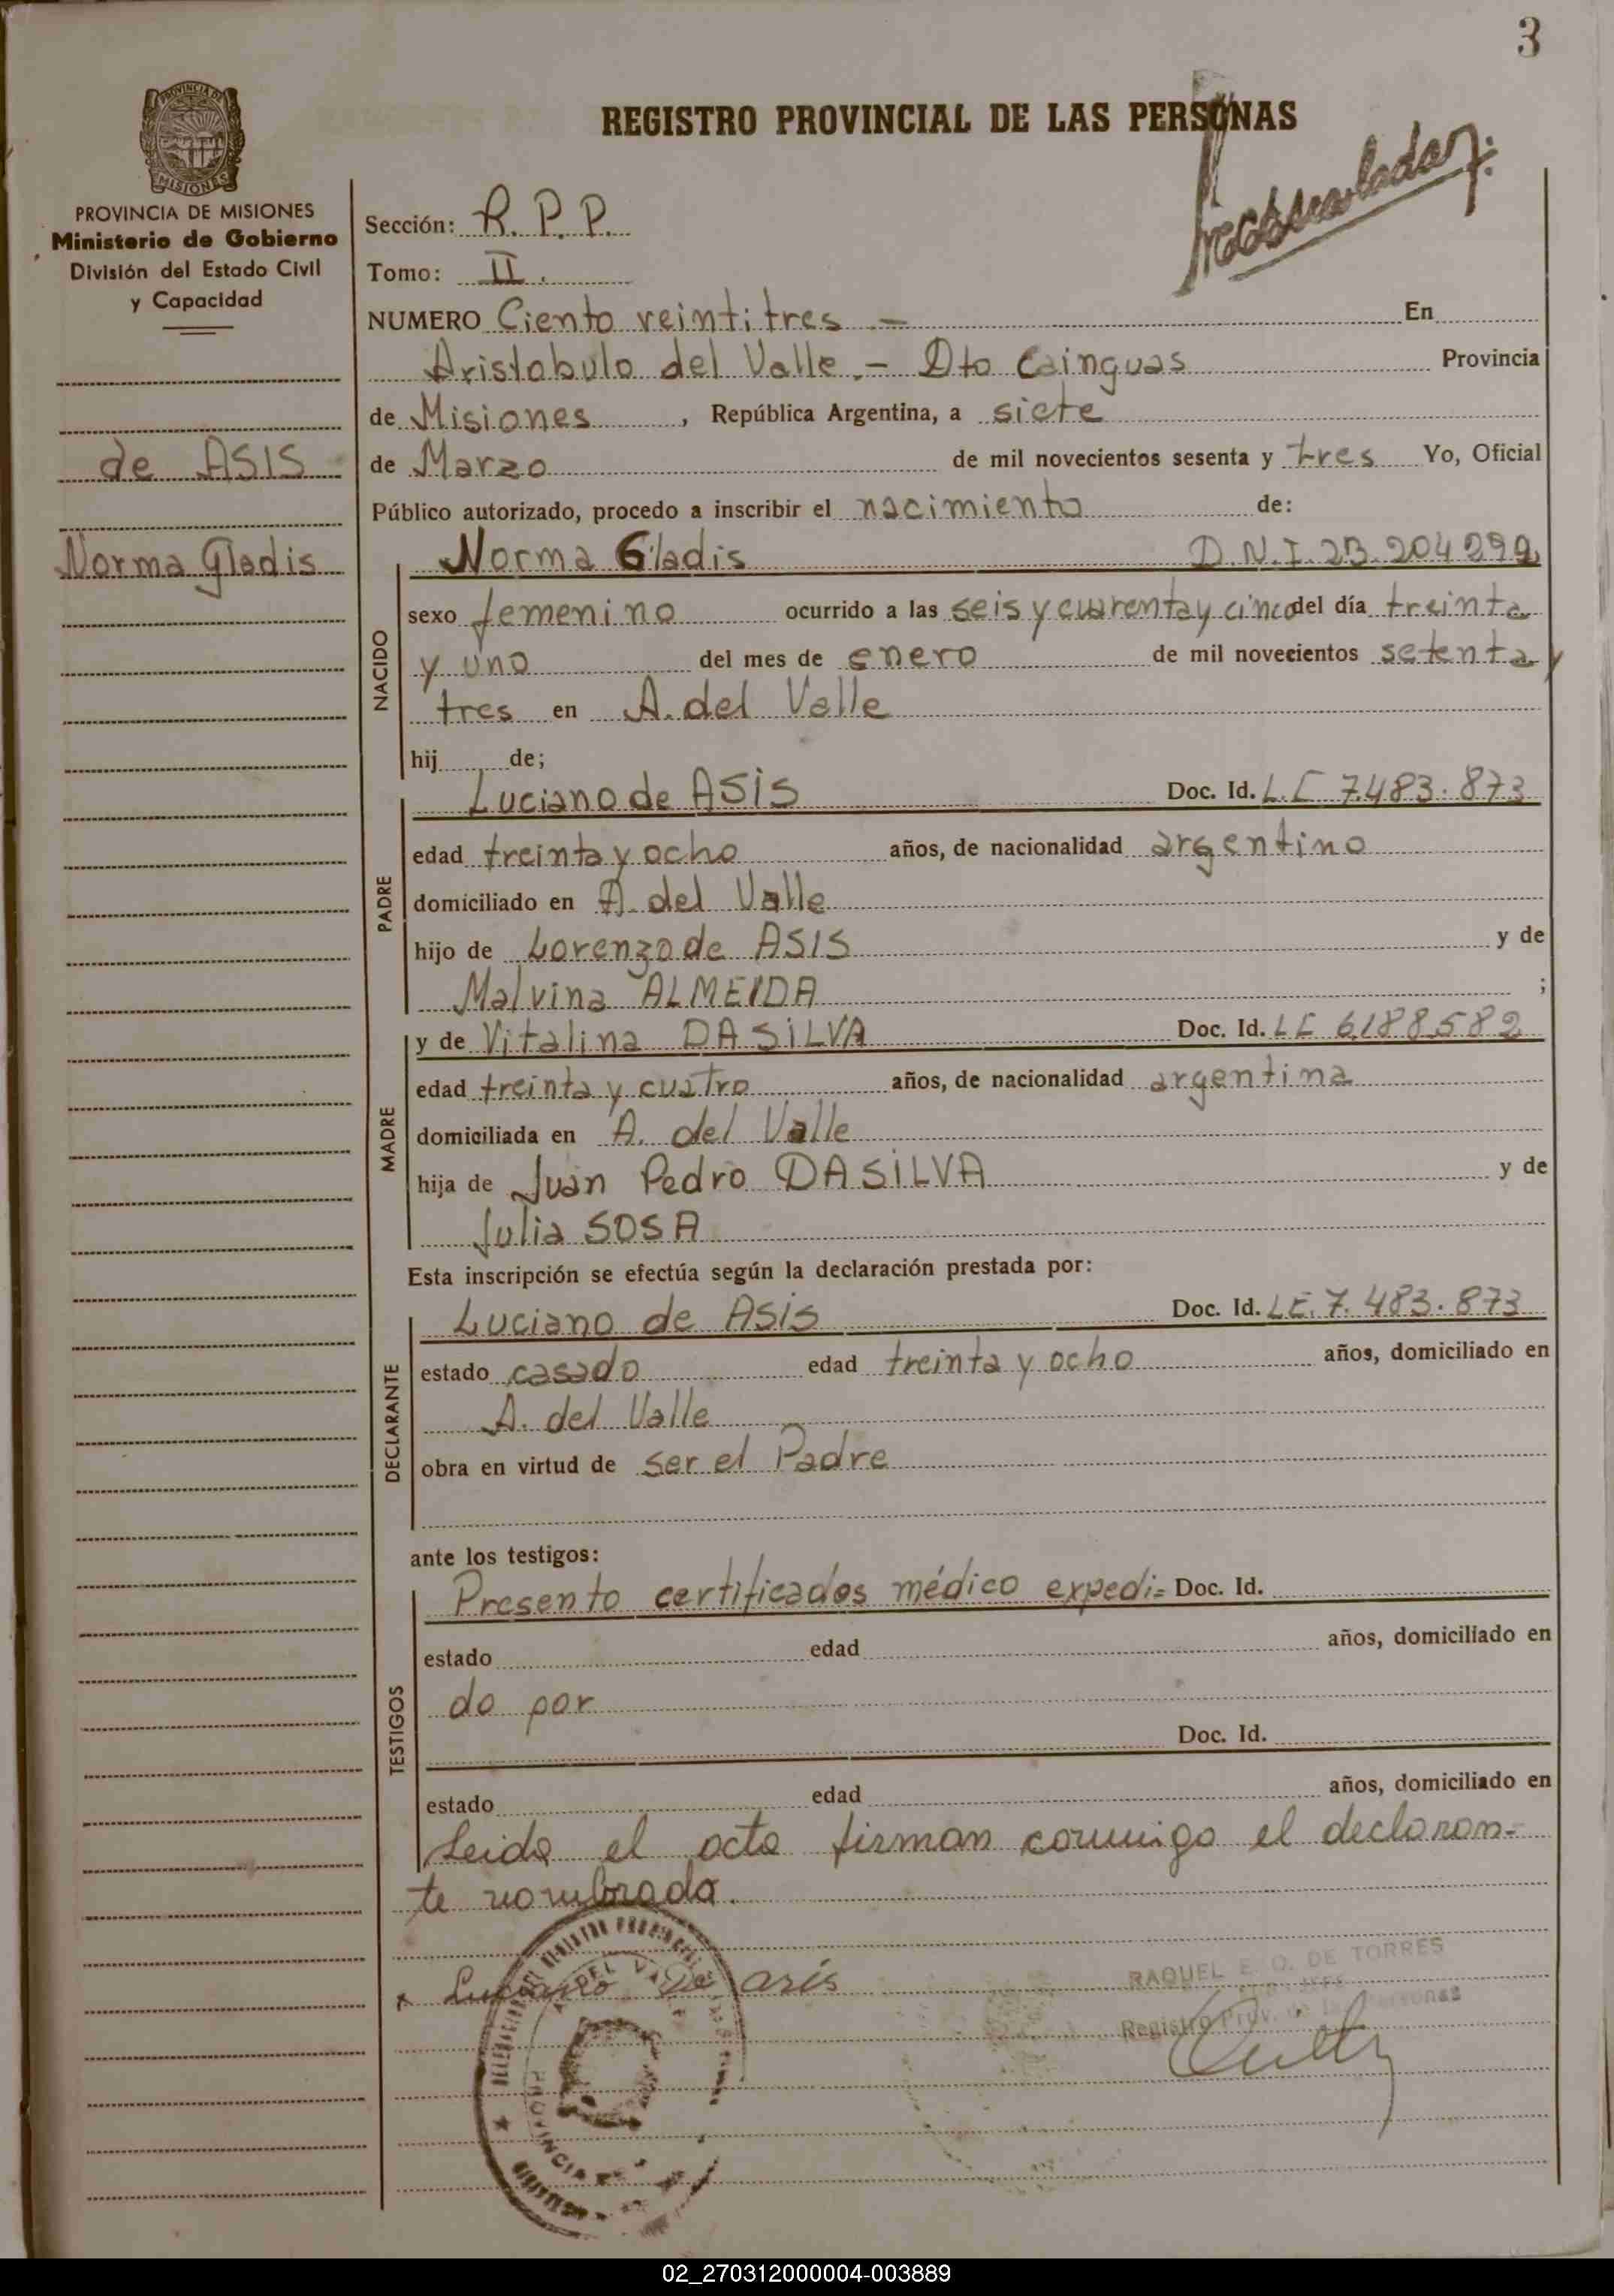 3
PROVINCIA DE
MISIONES
REGISTRO PROVINCIAL DE LAS PERSONAS
PROVINCIA DE MISIONES
Ministerio de Gobierno
División del Estado Civil
y Capacidad
de ASIS
Norma Gladis
Sección: R. P. P.
Tomo: II.
NUMERO Ciento veintitres .- En
Aristobulo del Valle.- Dto Cainguas Provincia
de Misiones , República Argentina, a siete
de Marzo de mil novecientos sesenta y tres Yo, Oficial
Público autorizado, procedo a inscribir el nacimiento de:
NACIDO
Norma Gladis D.N.I. 23.204.299
sexo femenino ocurrido a las seis y cuarenta y cinco del día treinta
y uno del mes de enero de mil novecientos setenta y
tres en A. del Valle
hij de;
PADRE
Luciano de ASIS Doc. Id. L.E 7.483.873
edad treinta y ocho años, de nacionalidad argentino
domiciliado en A. del Valle
hijo de Lorenzo de ASIS y de
Malvina ALMEIDA ;
MADRE
y de Vitalina DA SILVA Doc. Id. LE 6.188.582
edad treinta y cuatro años, de nacionalidad argentina
domiciliada en A. del Valle
hija de Juan Pedro DA SILVA y de
Julia SOSA
Esta inscripción se efectúa según la declaración prestada por:
DECLARANTE
Luciano de ASIS Doc. Id. LE. 7.483.873
estado casado edad treinta y ocho años, domiciliado en
A. del Valle
obra en virtud de ser el Padre
ante los testigos:
TESTIGOS
Presento certificados médico expedi= Doc. Id.
estado edad años, domiciliado en
do por
Doc. Id.
estado edad años, domiciliado en
Leida el acta firman conmigo el declaran=
te nombrado.
x Luciano de asis
RAQUEL E. O. DE TORRES
Registro Prov. de las Personas
PROVINCIA
MISIONES
02_270312000004-003889